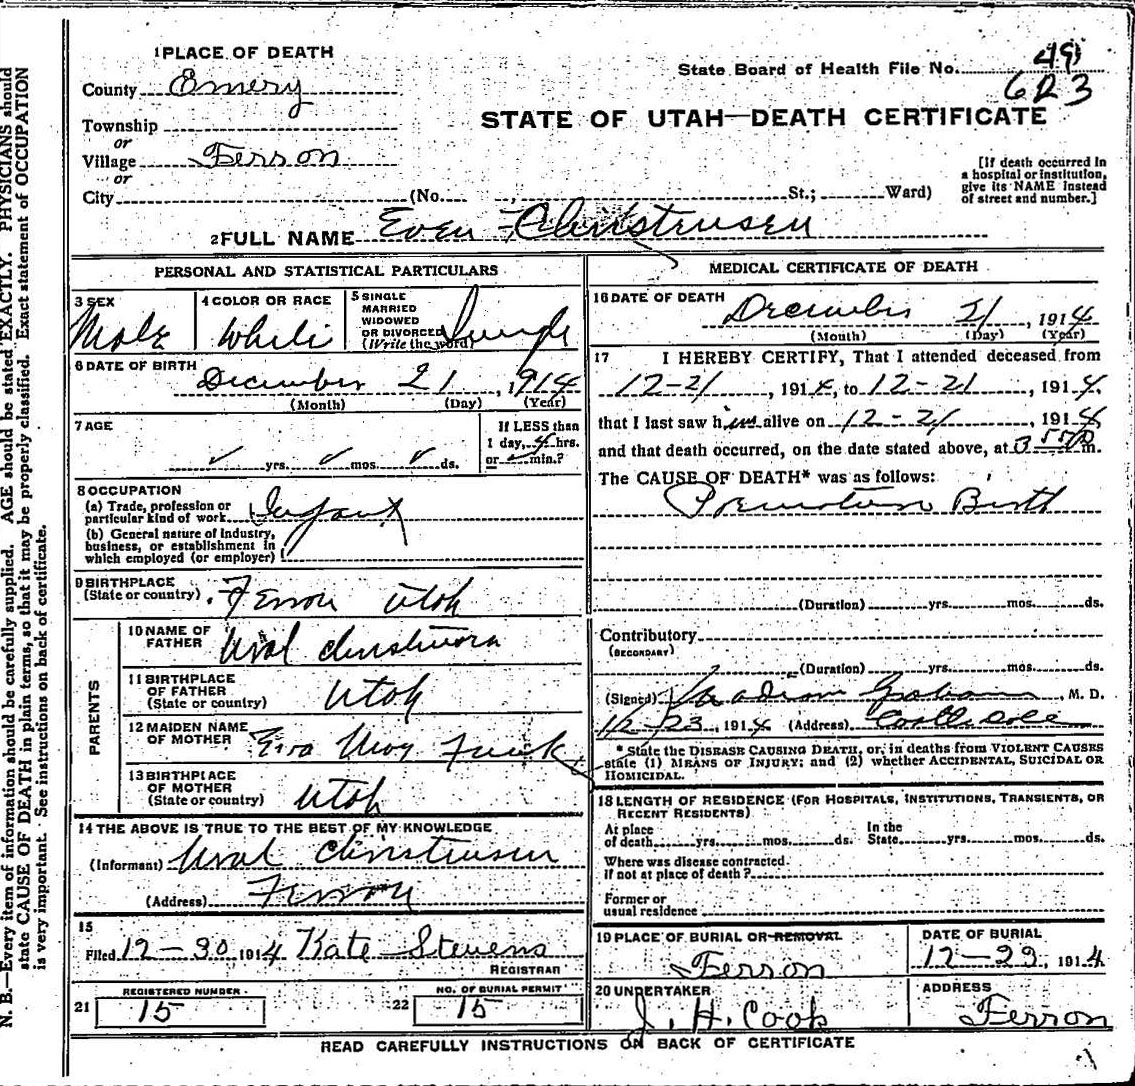 1 PLACE OF DEATH
County Emery
Township
or
Village Ferron
or
City (No. St.; Ward)
State Board of Health File No. 49
623
STATE OF UTAH—DEATH CERTIFICATE
[If death occurred in
a hospital or institution,
give its NAME instead
of street and number.]
2 FULL NAME Even Christensen
PERSONAL AND STATISTICAL PARTICULARS
3 SEX
Male
4 COLOR OR RACE
White
5 SINGLE
MARRIED
WIDOWED
OR DIVORCED
(Write the word)
Single
6 DATE OF BIRTH
December 21, 1914
(Month) (Day) (Year)
7 AGE
yrs. mos. ds.
If LESS than
1 day, 4 hrs.
or min.?
8 OCCUPATION
(a) Trade, profession or
particular kind of work Infant
(b) General nature of industry,
business, or establishment in
which employed (or employer)
9 BIRTHPLACE
(State or country) Ferron Utah
PARENTS
10 NAME OF
FATHER Uval Christensen
11 BIRTHPLACE
OF FATHER
(State or country) Utah
12 MAIDEN NAME
OF MOTHER Eva May Funk
13 BIRTHPLACE
OF MOTHER
(State or country) Utah
14 THE ABOVE IS TRUE TO THE BEST OF MY KNOWLEDGE
(Informant) Uval Christensen
(Address) Ferron
15
Filed 12-30, 1914 Kate Stevens
REGISTRAR
21 REGISTERED NUMBER
15
22 NO. OF BURIAL PERMIT
15
MEDICAL CERTIFICATE OF DEATH
16 DATE OF DEATH
December 21, 1914
(Month) (Day) (Year)
17 I HEREBY CERTIFY, That I attended deceased from
12-21, 1914, to 12-21, 1914.
that I last saw him alive on 12-21, 1914
and that death occurred, on the date stated above, at 3 55 P m.
The CAUSE OF DEATH* was as follows:
Premature Birth
(Duration) yrs. mos. ds.
Contributory
(SECONDARY)
(Duration) yrs. mos. ds.
(Signed) Graham, M. D.
12-23, 1914 (Address) Castle Dale
* State the DISEASE CAUSING DEATH, or, in deaths from VIOLENT CAUSES
state (1) MEANS OF INJURY; and (2) whether ACCIDENTAL, SUICIDAL OR
HOMICIDAL.
18 LENGTH OF RESIDENCE (FOR HOSPITALS, INSTITUTIONS, TRANSIENTS, OR
RECENT RESIDENTS)
At place
of death yrs. mos. ds.
In the
State yrs. mos. ds.
Where was disease contracted
if not at place of death?
Former or
usual residence
19 PLACE OF BURIAL OR REMOVAL
Ferron
DATE OF BURIAL
12-23, 1914
20 UNDERTAKER
J. H. Cook
ADDRESS
Ferron
READ CAREFULLY INSTRUCTIONS ON BACK OF CERTIFICATE
N. B.—Every item of information should be carefully supplied. AGE should be stated EXACTLY. PHYSICIANS should
state CAUSE OF DEATH in plain terms, so that it may be properly classified. Exact statement of OCCUPATION
is very important. See instructions on back of certificate.